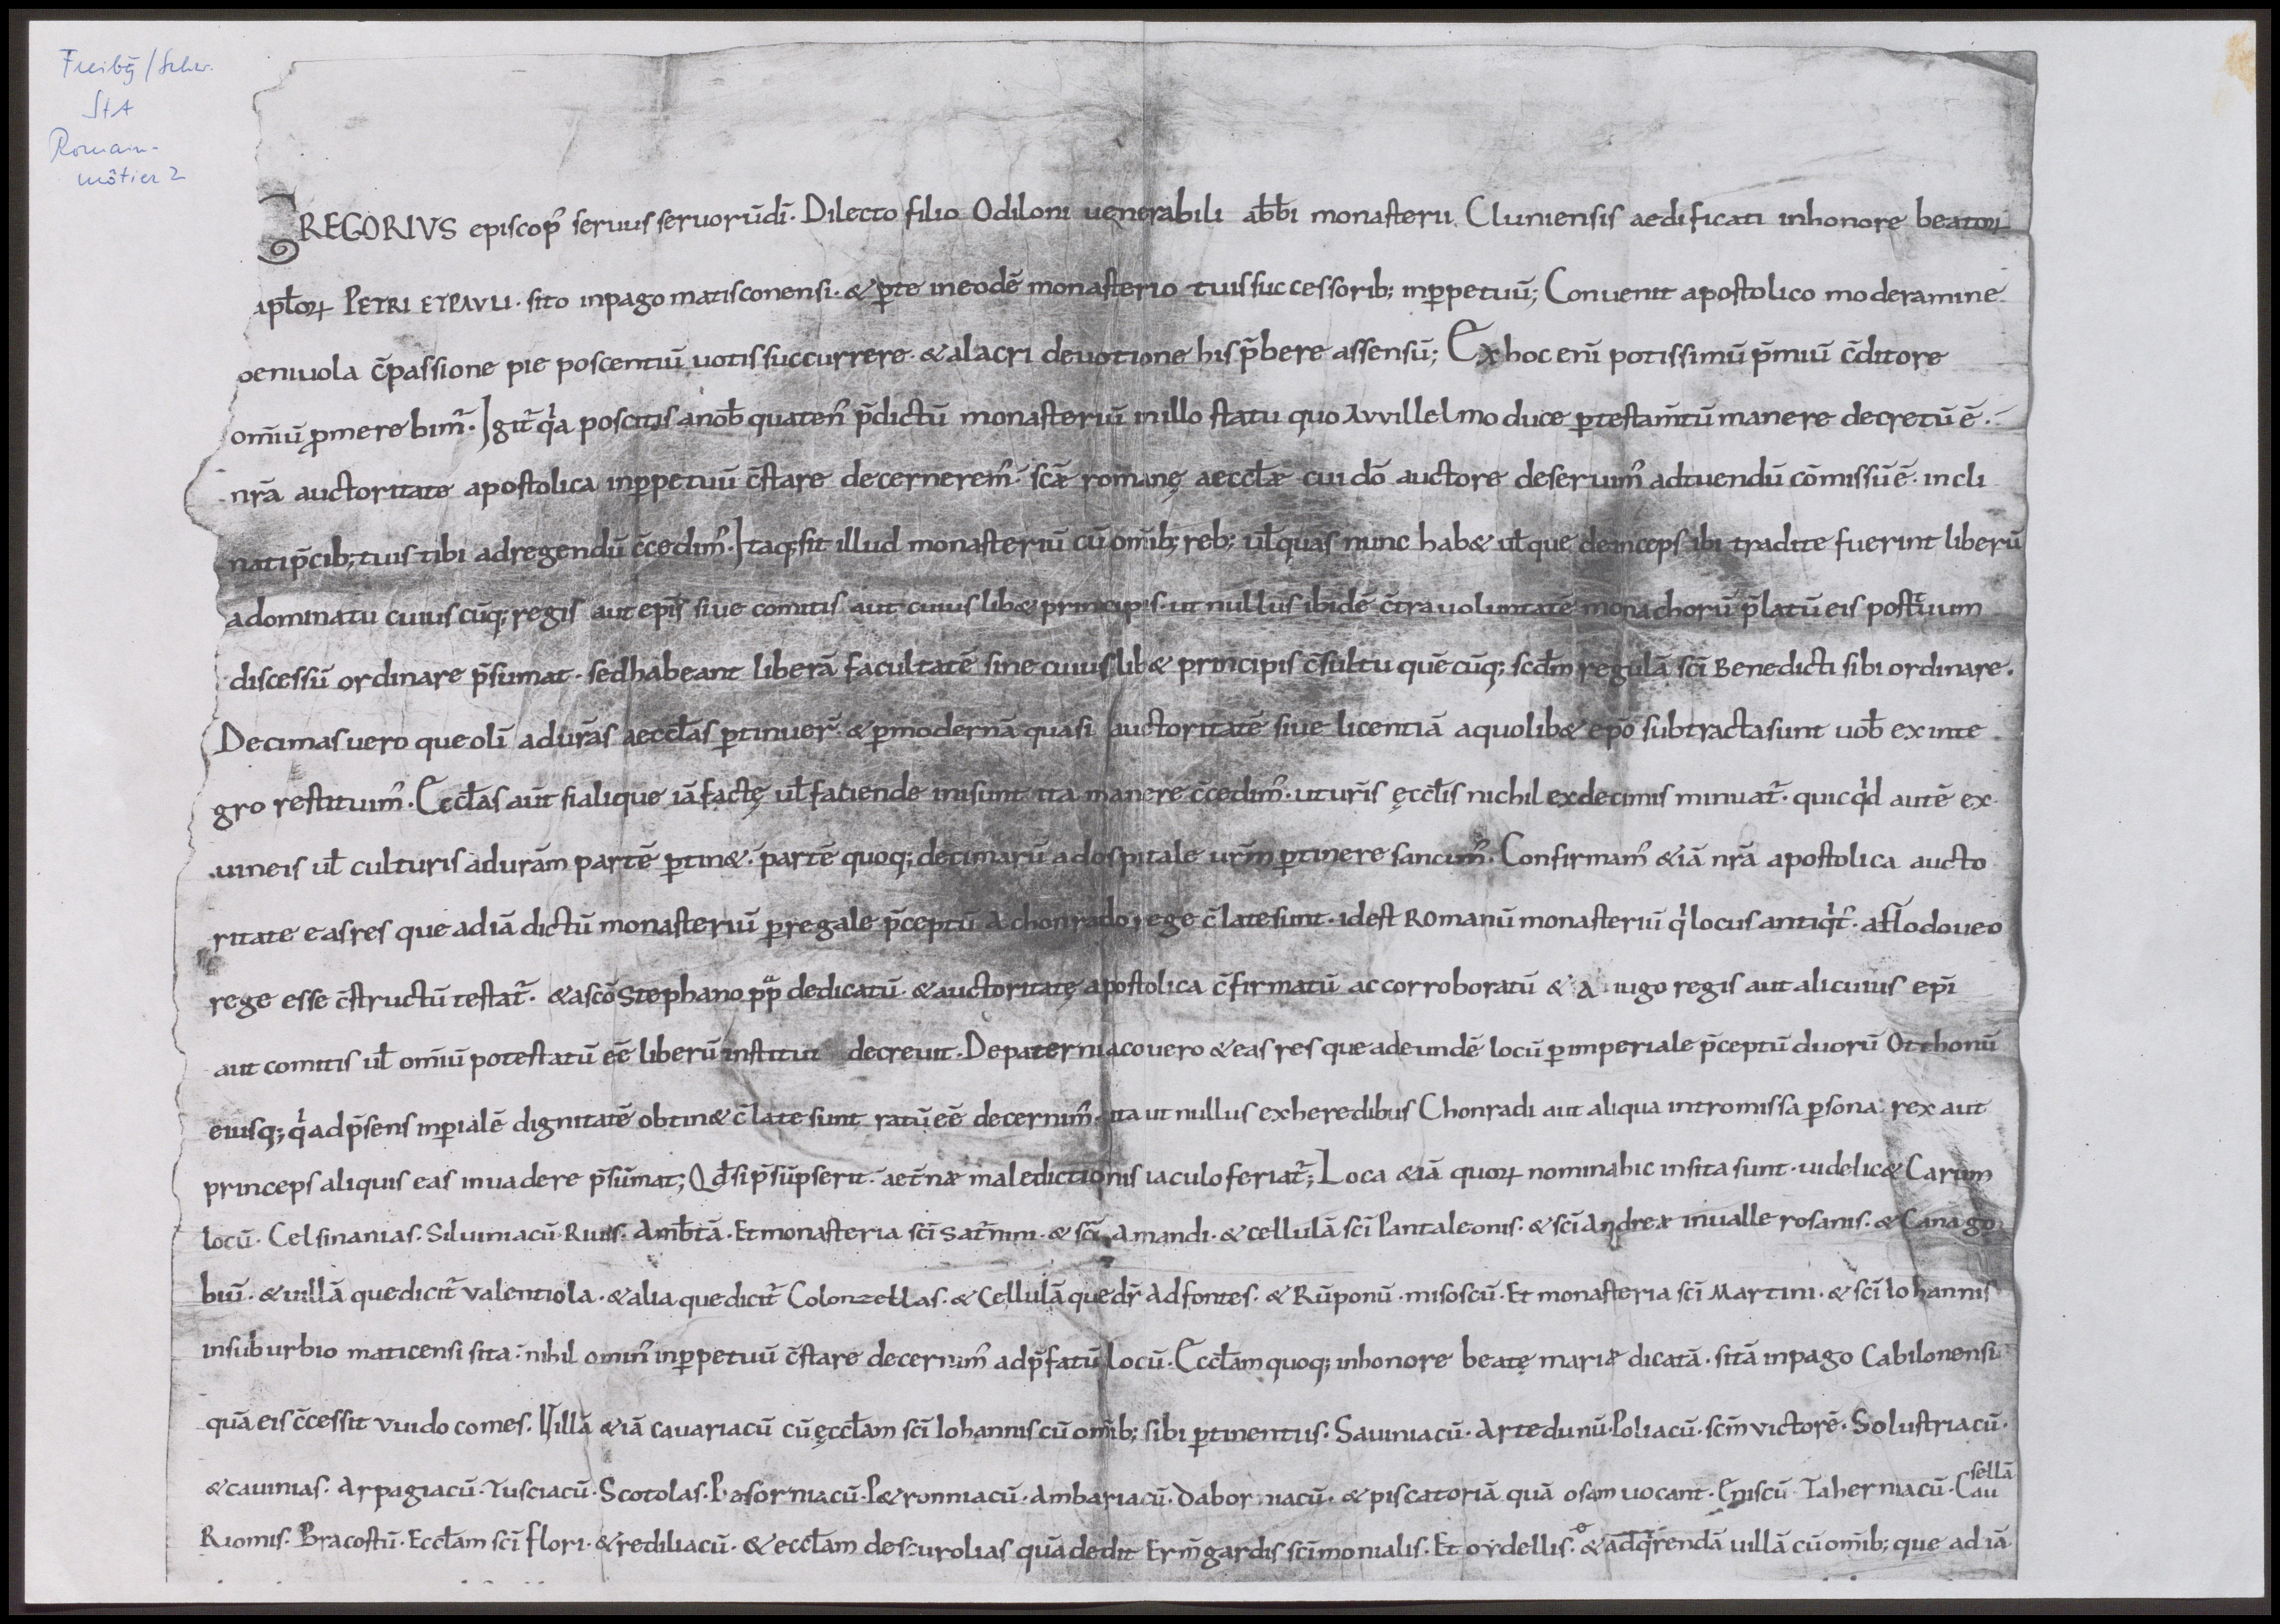 Freibg/Schw.
StA
Romain-
môtier 2
GREGORIVS episcop᾽ seruus seruorūdī. Dilecto filio Odiloni uenerabili ab̄bi monasterii Cluniensis aedificati inhonore beatoꝝ
apl̄oꝝ PETRI ETPAVLI. sito inpago matisconensi. &ꝑte ineodē monasterio tuissuccessorib; inꝑpetuū; Conuenit apostolico moderamine
beniuola c̄passione pie poscentiū uotissuccurrere. &alacri deuotione his p̄bere assensū; Exhoc enī potissimū p̄miū c̄ditore
om̄iū ꝓmerebim᾽. Igit᾽ qͥa poscitis anob̄ quaten᾽ p̄dictū monasteriū inillo statu quo Avvillelmo duce ꝑtestam̄tū manere decretū ē.
nr̄a auctoritate apostolica inꝑpetuū c̄stare decernerem᾽. sc̄æ romanę aeccl̄æ cui dō auctore deseruim᾽ adtuendū cōmissū ē. incli
nati p̄cib; tuis tibi adregendū c̄cedim᾽. Itaq; sit illud monasteriū cū om̄ib; reb; ul̄ quas nunc hab& ul̄ que deinceps ibi tradite fuerint liberū
adominatu cuiuscūq; regis aut epī siue comitis aut cuiuslib& principis. ut nullus ibidē c̄tra uoluntatē monachorū p̄latū eis post tuum
discessū ordinare p̄sumat. sedhabeant liberā facultatē sine cuiuslib& principis c̄sultu quēcūq; scd̄m regulā sc̄i Benedicti sibi ordinare.
Decimas uero que olī adur̄as aeccl̄as ꝑtinuer̄. &ꝑmodernā quasi auctoritatē siue licentiā aquolib& epō subtracta sunt uob̄ ex inte
gro restituim᾽. Eccl̄as aūt si alique iā factę ul̄ faciende inisunt ita manere c̄cedim᾽. utur̄is ęccl̄is nichil exdecimis minuat᾽. quicqͥd autē ex
uineis ul̄ culturis adur̄am partē ꝑtin&. partē quoq; decimarū adospitale ur̄m ꝑtinere sancim᾽. Confirmam᾽ &iā nr̄a apostolica aucto
ritate easres que adiā dictū monasteriū ꝑregale p̄ceptū a chonrado rege c̄latesunt. idest Romanū monasteriū qͥ locus antiqͥt᾽. a Hlodoueo
rege esse c̄structū testat᾽. &ascō Stephano pp̄ dedicatū. &auctoritatę apostolica c̄firmatū ac corroboratū & a iugo regis aut alicuius epī
aut comitis ul̄ om̄iū potestatū eē liberū instituit decreuit. Depaterniaco uero & eas res que adeundē locū ꝑimperiale p̄ceptū duorū Otthonū
eiusq; qͥ adp̄sens inperialē dignitatē obtin& c̄late sunt ratū eē decernim᾽. ita ut nullus exheredibus Chonradi aut aliqua intromissa ꝑsona rex aut
princeps aliquis eas inuadere p̄sūmat; Qd̄ si p̄sūpserit. aet̄næ maledictionis iaculo feriat᾽; Loca &iā quoꝝ nominahic insita sunt. uidelic& Carum
locū. Celsinanias. Siluiniacū. Riuis. Amb̄tā. Et monasteria sc̄i Sat᾽nini. & sc̄i Amandi. & cellulā sc̄i Pantaleonis. & sc̄i Andreæ inualle rosanis. & Canago
biū. & uillā quedicit᾽ valentiola. & alia quedicit᾽ Colonzellas. & Cellulā quedr̄ Adfontes. & Rūponū. misoscū. Et monasteria sc̄i Martini. & sc̄i Iohannis
insuburbio maticensi sita. nihil omin᾽ inꝑpetuū c̄stare decernim᾽ adp̄fatū locū. Eccl̄am quoq; inhonore beatę mariæ dicatā. sitā inpago Cabilonensi
quā eis c̄cessit vuido comes. Uillā &iā cauariacū cū ęccl̄am sc̄i Iohannis cū om̄ib; sibi ꝑtinentiis. Sauiniacū. Artedunū. Poliacū. sc̄m victorē. Solustriacū.
& cauinias. Arpagiacū. Tusciacū. Scotolas. Basorniacū. P&ronniacū. Ambariacū. Daborniacū. & piscatoriā quā osam uocant. Eniscū. Taherniacū. Cau sellā
Riomis. Bracostū. Eccl̄am sc̄i flori. & rediliacū. & eccl̄am descurolias quā dedit Erm̄gardis sc̄imonialis. Et ordellis. & adqͥrendā uillā cū om̄ib; que ad iā